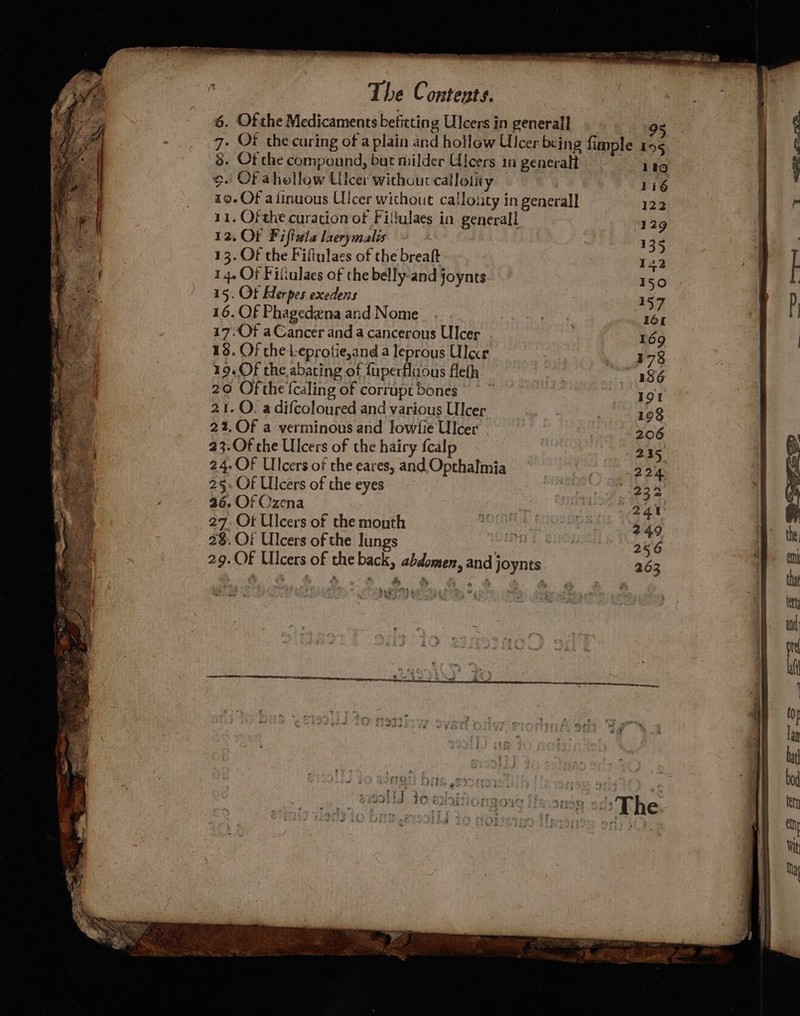 The Contents.
6. Of the Medicaments befitting Ulcers in generall 95
7. Of the curing of a plain and hollow Ulcer being ſimple 105
8. Of the compound, but milder Ulcers in generall 110
9. Of a hollow Ulcer without calloſity 116
10. Of a ſinuous Ulcer without calloſity in generall 122
11. Of the curation of Fiſtulaes in generall 129
12. Of Fiſtula lacrymalis 135
13. Of the Fiſtulaes of the breaſt 142
14. Of Fiſtulaes of the belly and joynts 150
15. Of Herpes exedens 157
16. Of Phagedæna and Nome 161
17. Of a Cancer and a cancerous Ulcer 169
18. Of the Leproſie, and a leprous Ulcer 178
19. Of the abating of ſuperfluous fleſh 186
20 Of the ſcaling of corrupt bones 191
21. O. a diſcoloured and various Ulcer 198
22. Of a verminous and lowſie Ulcer 206
23. Of the Ulcers of the hairy ſcalp 215
24. Of Ulcers of the eares, and Opthalmia 224
25. Of Ulcers of the eyes 232
26. Of Ozena 241
27. Of Ulcers of the mouth 249
28. Of Ulcers of the lungs 256
29. Of Ulcers of the back, abdomen, and joynts 263
The